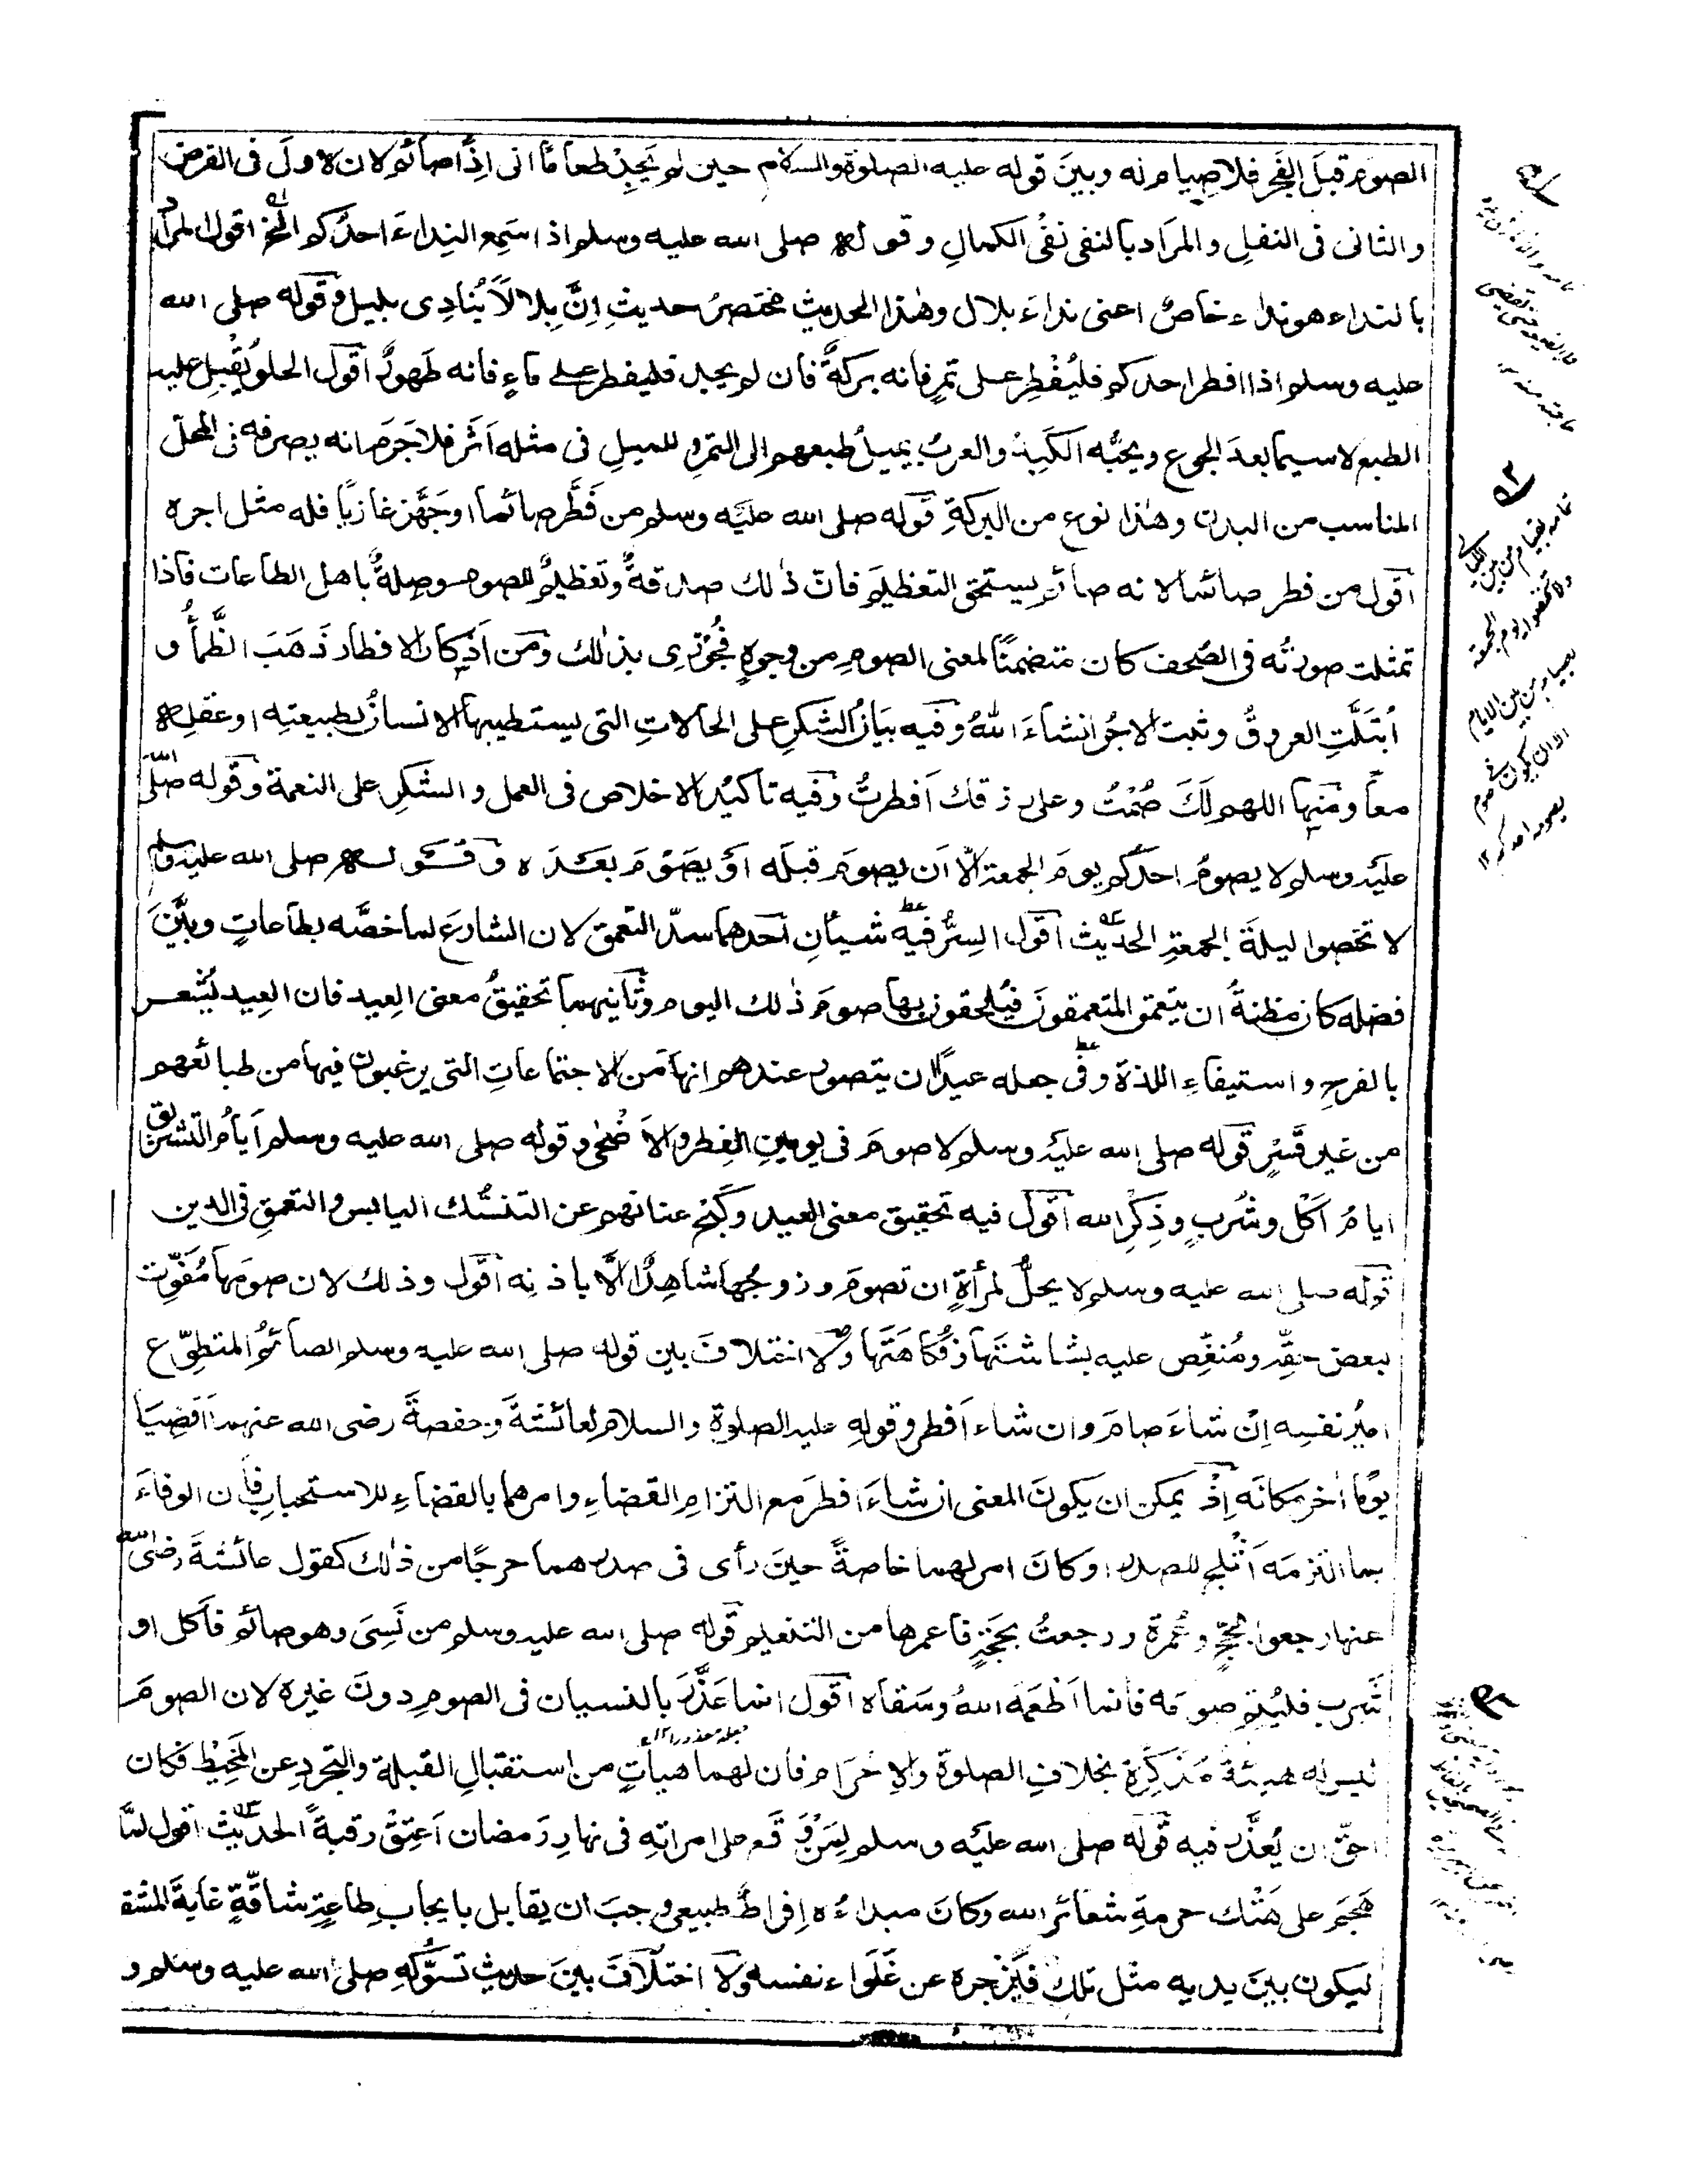 الصوم قبل الفجر فلا صيام له وبين قوله عليه الصلوة والسلام حين لم يجد طعاما انى اذا صائم لان الاول فى الفرض
والثانى فى النفل والمراد بالنفى نفى الكمال وقوله صلى الله عليه وسلم اذا سمع النداء احدكم الخ اقول المراد
بالنداء هو نداء خاص اعنى نداء بلال وهذا الحديث مختصر حديث ان بلالا ينادى بليل وقوله صلى الله
عليه وسلم اذا افطر احدكم فليفطر على تمر فانه بركة فان لم يجد فليفطر على ماء فانه طهور اقول الحلو يقبل عليه
الطبع لا سيما بعد الجوع ويحبه الكبد والعرب يميل طبعهم الى التمر وللميل فى مثله اثر فلا جرم انه يصرفه فى المحل
المناسب من البدن وهذا نوع من البركة قوله صلى الله عليه وسلم من فطر صائما او جهز غازيا فله مثل اجره
اقول من فطر صائما لانه صائم يستحق التعظيم فان ذلك صدقة وتعظيم للصوم وصلة باهل الطاعات فاذا
تمثلت صورته فى الصحف كان متضمنا لمعنى الصوم من وجوه فجوزى بذلك ومن اذكار الافطار ذهب الظمأ و
ابتلت العروق وثبت الاجر انشاء الله وفيه بيان الشكر على الحالات التى يستطيبها الانسان بطبيعته او عقله
معا ومنها اللهم لك صمت وعلى رزقك افطرت وفيه تاكيد الاخلاص فى العمل والشكر على النعمة وقوله صلى الله
عليه وسلم لا يصوم احدكم يوم الجمعة الا ان يصوم قبله او يصوم بعده وقوله صلى الله عليه وسلم
لا تخصوا ليلة الجمعة الحديث اقول السر فيه شيئان احدهما سد التعمق لان الشارع لما خصه بطاعات وبين
فضله كان مظنة ان يتعمق المتعمقون فيلحقون بها صوم ذلك اليوم وثانيهما تحقيق معنى العيد فان العيد يشعر
بالفرح واستيفاء اللذة وفى جعله عيدا ان يتصور عندهم انها من الاجتماعات التى يرغبون فيها من طبائعهم
من غير قسر قوله صلى الله عليه وسلم لا صوم فى يومين الفطر والاضحى وقوله صلى الله عليه وسلم ايام التشريق
ايام اكل وشرب وذكر الله اقول فيه تحقيق معنى العيد وكبح عنانهم عن التنسك اليابس والتعمق فى الدين
قوله صلى الله عليه وسلم لا يحل لمرأة ان تصوم وزوجها شاهد الا باذنه اقول وذلك لان صومها مفوت
لبعض حقه ومنغص عليه بشاشتها وفكاهتها ولا اختلاف بين قوله صلى الله عليه وسلم الصائم المتطوع
امير نفسه ان شاء صام وان شاء افطر وقوله عليه الصلوة والسلام لعائشة وحفصة رضى الله عنهما اقضيا
يوما اخر مكانه اذ يمكن ان يكون المعنى ان شاء افطر مع التزام القضاء وامرهما بالقضاء للاستحباب فان الوفاء
بما التزمه اثلج للصدر او كان امر لهما خاصة حين رأى فى صدرهما حرجا من ذلك كقول عائشة رضى الله
عنها رجعوا بحج وعمرة ورجعت بحجة فاعمرها من التنعيم قوله صلى الله عليه وسلم من نسى وهو صائم فاكل او
شرب فليتم صومه فانما اطعمه الله وسقاه اقول انما عذر بالنسيان فى الصوم دون غيره لان الصوم
ليس له هيئة مذكرة بخلاف الصلوة والاحرام فان لهما هيات من استقبال القبلة والتجرد عن المخيط فكان
احق ان يعذر فيه قوله صلى الله عليه وسلم لمن وقع على امراته فى نهار رمضان اعتق رقبة الحديث اقول لما
هجم على هتك حرمة شعائر الله وكان مبداءه افراط طبيعى وجب ان يقابل بايجاب طاعة شاقة غاية المشقة
ليكون بين يديه مثل تلك فيزجره عن غلواء نفسه ولا اختلاف بين حديث تسوكه صلى الله عليه وسلم و
تمامه بقيام من بين الليالى
ولا تخصوا يوم الجمعة
بصيام من بين الايام
الا ان يكون فى صوم
يصومه احدكم ١٢